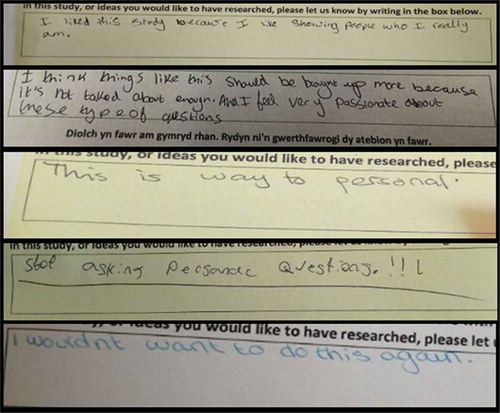 in this study, or ideas you would like to have researched, please let us know by writing in the box below.
I liked this study because I like showing people who I really
am.
I think things like this should be bought up more because
it's not talked about enough. And I feel very passionate about
these type of questions
Diolch yn fawr am gymryd rhan. Rydyn ni'n gwerthfawrogi dy atebion yn fawr.
this study, or ideas you would like to have researched, please
This is way to personal.
in this study, or ideas you would like to have researched, please let
stop asking personal Questions.!!!
ideas you would like to have researched, please let
I wouldnt want to do this again.